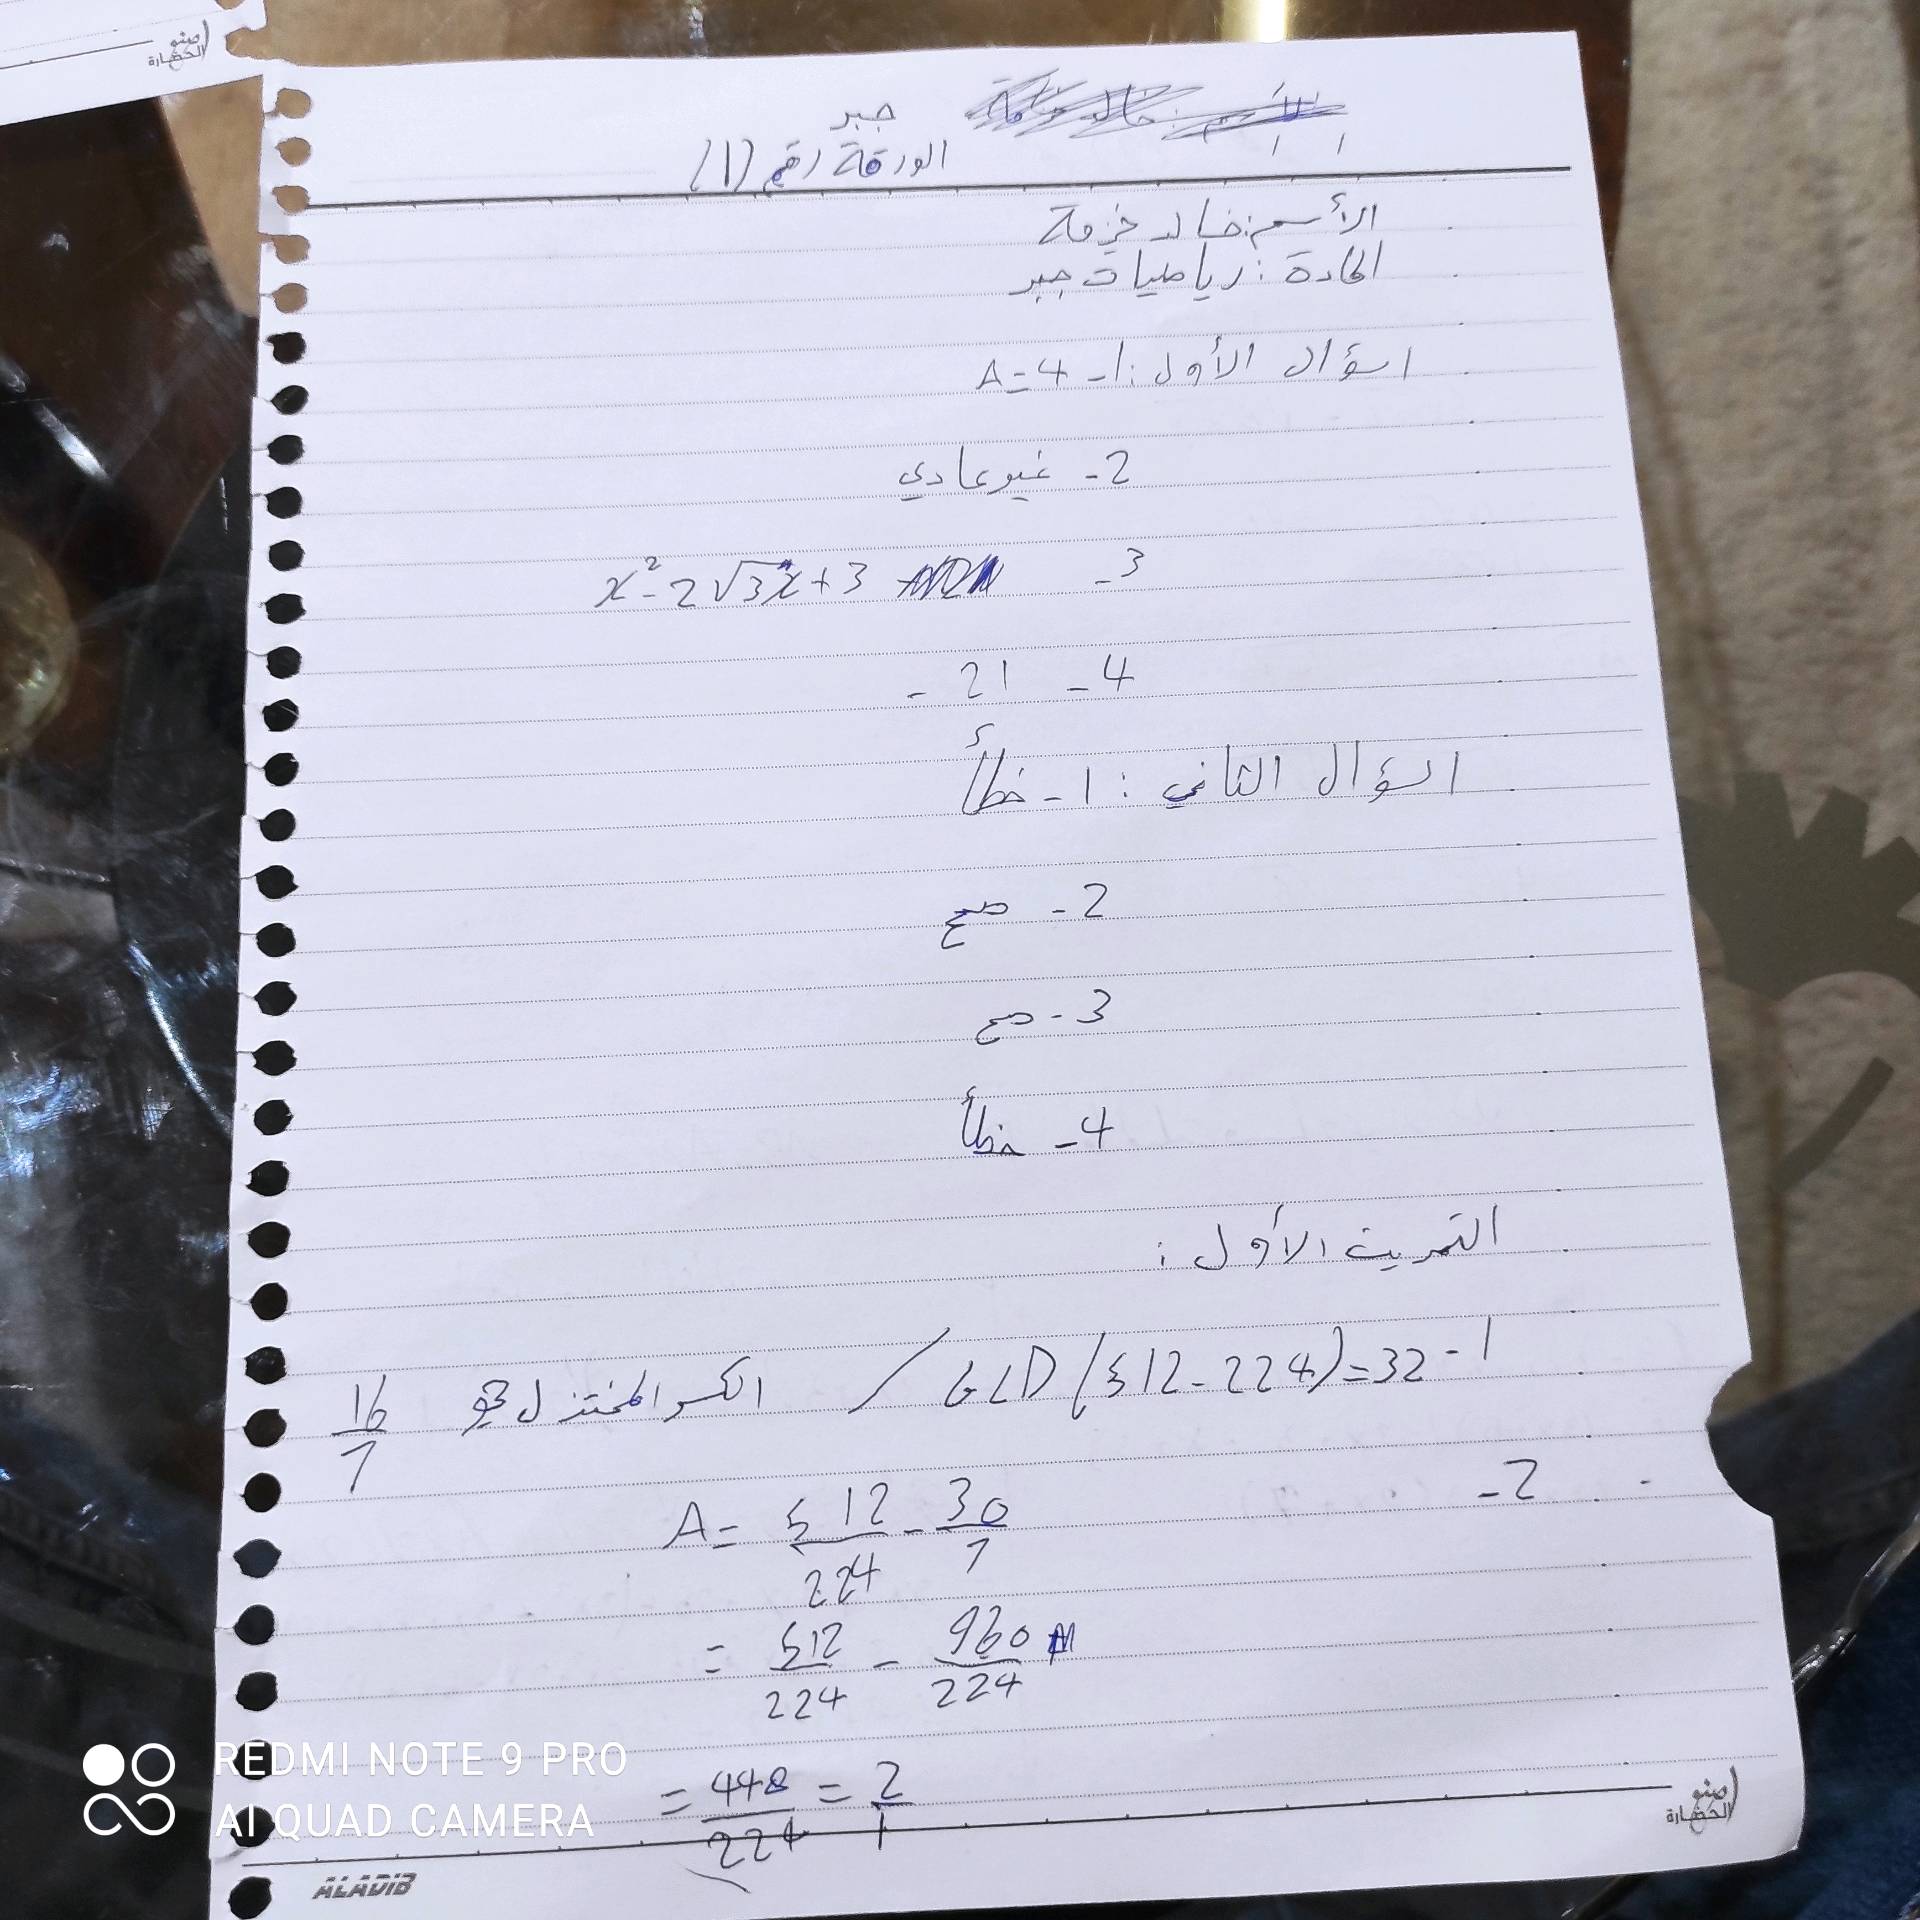 إصنع
الحضارة
جبر
الورقة رقم (1)
الأسم: خالد خزمة
المادة: رياضيات جبر
السؤال الأول: 1- A=4
2- غير عادي
3- x²-2√3x+3
4- 21 -
السؤال الثاني: 1- خطأ
2- صح
3- صح
4- خطأ
التمرين الأول:
1- GCD(512-224)=32 / الكسر المختزل هو 16/7
2- A= 512/224 - 30/7
= 512/224 - 960/224
= 448/224 = 2/1
إصنع
الحضارة
ALADIB
REDMI NOTE 9 PRO
AI QUAD CAMERA